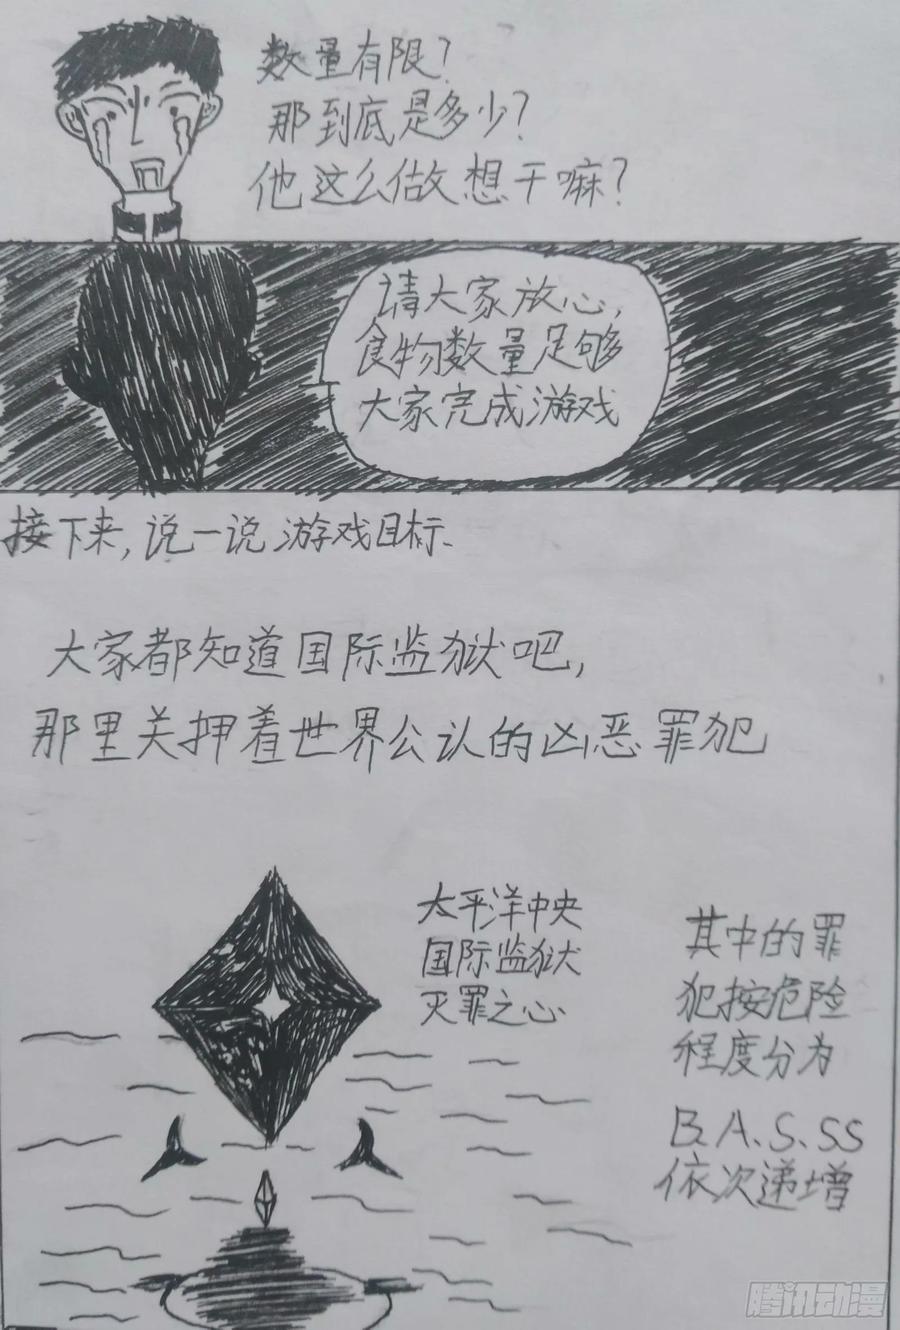 数量有限?
那到底是多少?
他这么做想干嘛?
请大家放心,
食物数量足够
大家完成游戏
接下来,说一说游戏目标.
大家都知道国际监狱吧,
那里关押着世界公认的凶恶罪犯
太平洋中央
国际监狱
灭罪之心
其中的罪
犯按危险
程度分为
B.A.S.SS
依次递增
腾讯动漫